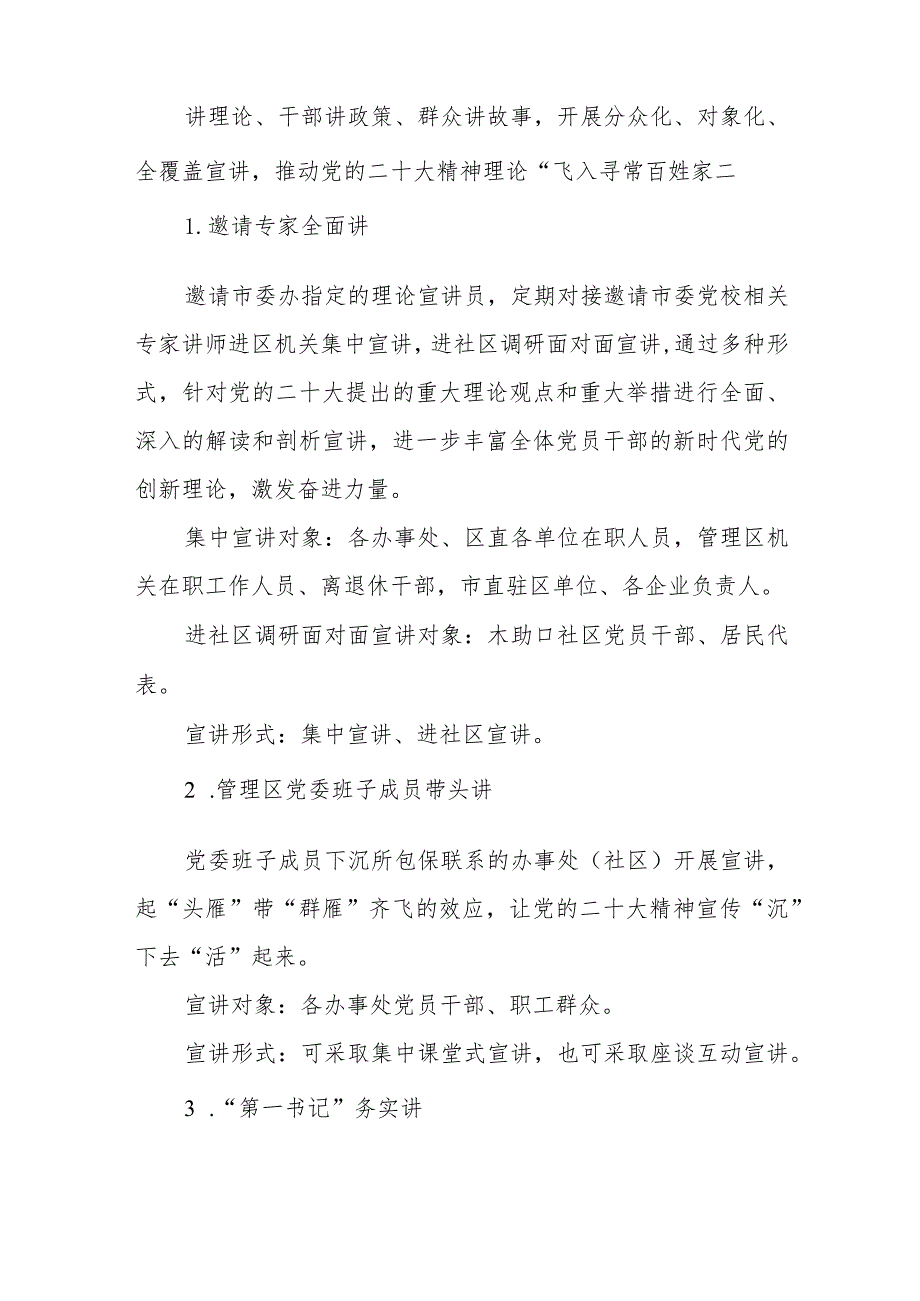 讲理论、干部讲政策、群众讲故事，开展分众化、对象化、
全覆盖宣讲，推动党的二十大精神理论“飞入寻常百姓家二
1. 邀请专家全面讲
邀请市委办指定的理论宣讲员，定期对接邀请市委党校相关
专家讲师进区机关集中宣讲,进社区调研面对面宣讲,通过多种形
式，针对党的二十大提出的重大理论观点和重大举措进行全面、
深入的解读和剖析宣讲，进一步丰富全体党员干部的新时代党的
创新理论，激发奋进力量。
集中宣讲对象：各办事处、区直各单位在职人员，管理区机
关在职工作人员、离退休干部，市直驻区单位、各企业负责人。
进社区调研面对面宣讲对象：木助口社区党员干部、居民代
表。
宣讲形式：集中宣讲、进社区宣讲。
2 .管理区党委班子成员带头讲
党委班子成员下沉所包保联系的办事处（社区）开展宣讲，
起“头雁”带“群雁”齐飞的效应，让党的二十大精神宣传“沉”
下去“活”起来。
宣讲对象：各办事处党员干部、职工群众。
宣讲形式：可采取集中课堂式宣讲，也可采取座谈互动宣讲。
3 .“第一书记”务实讲